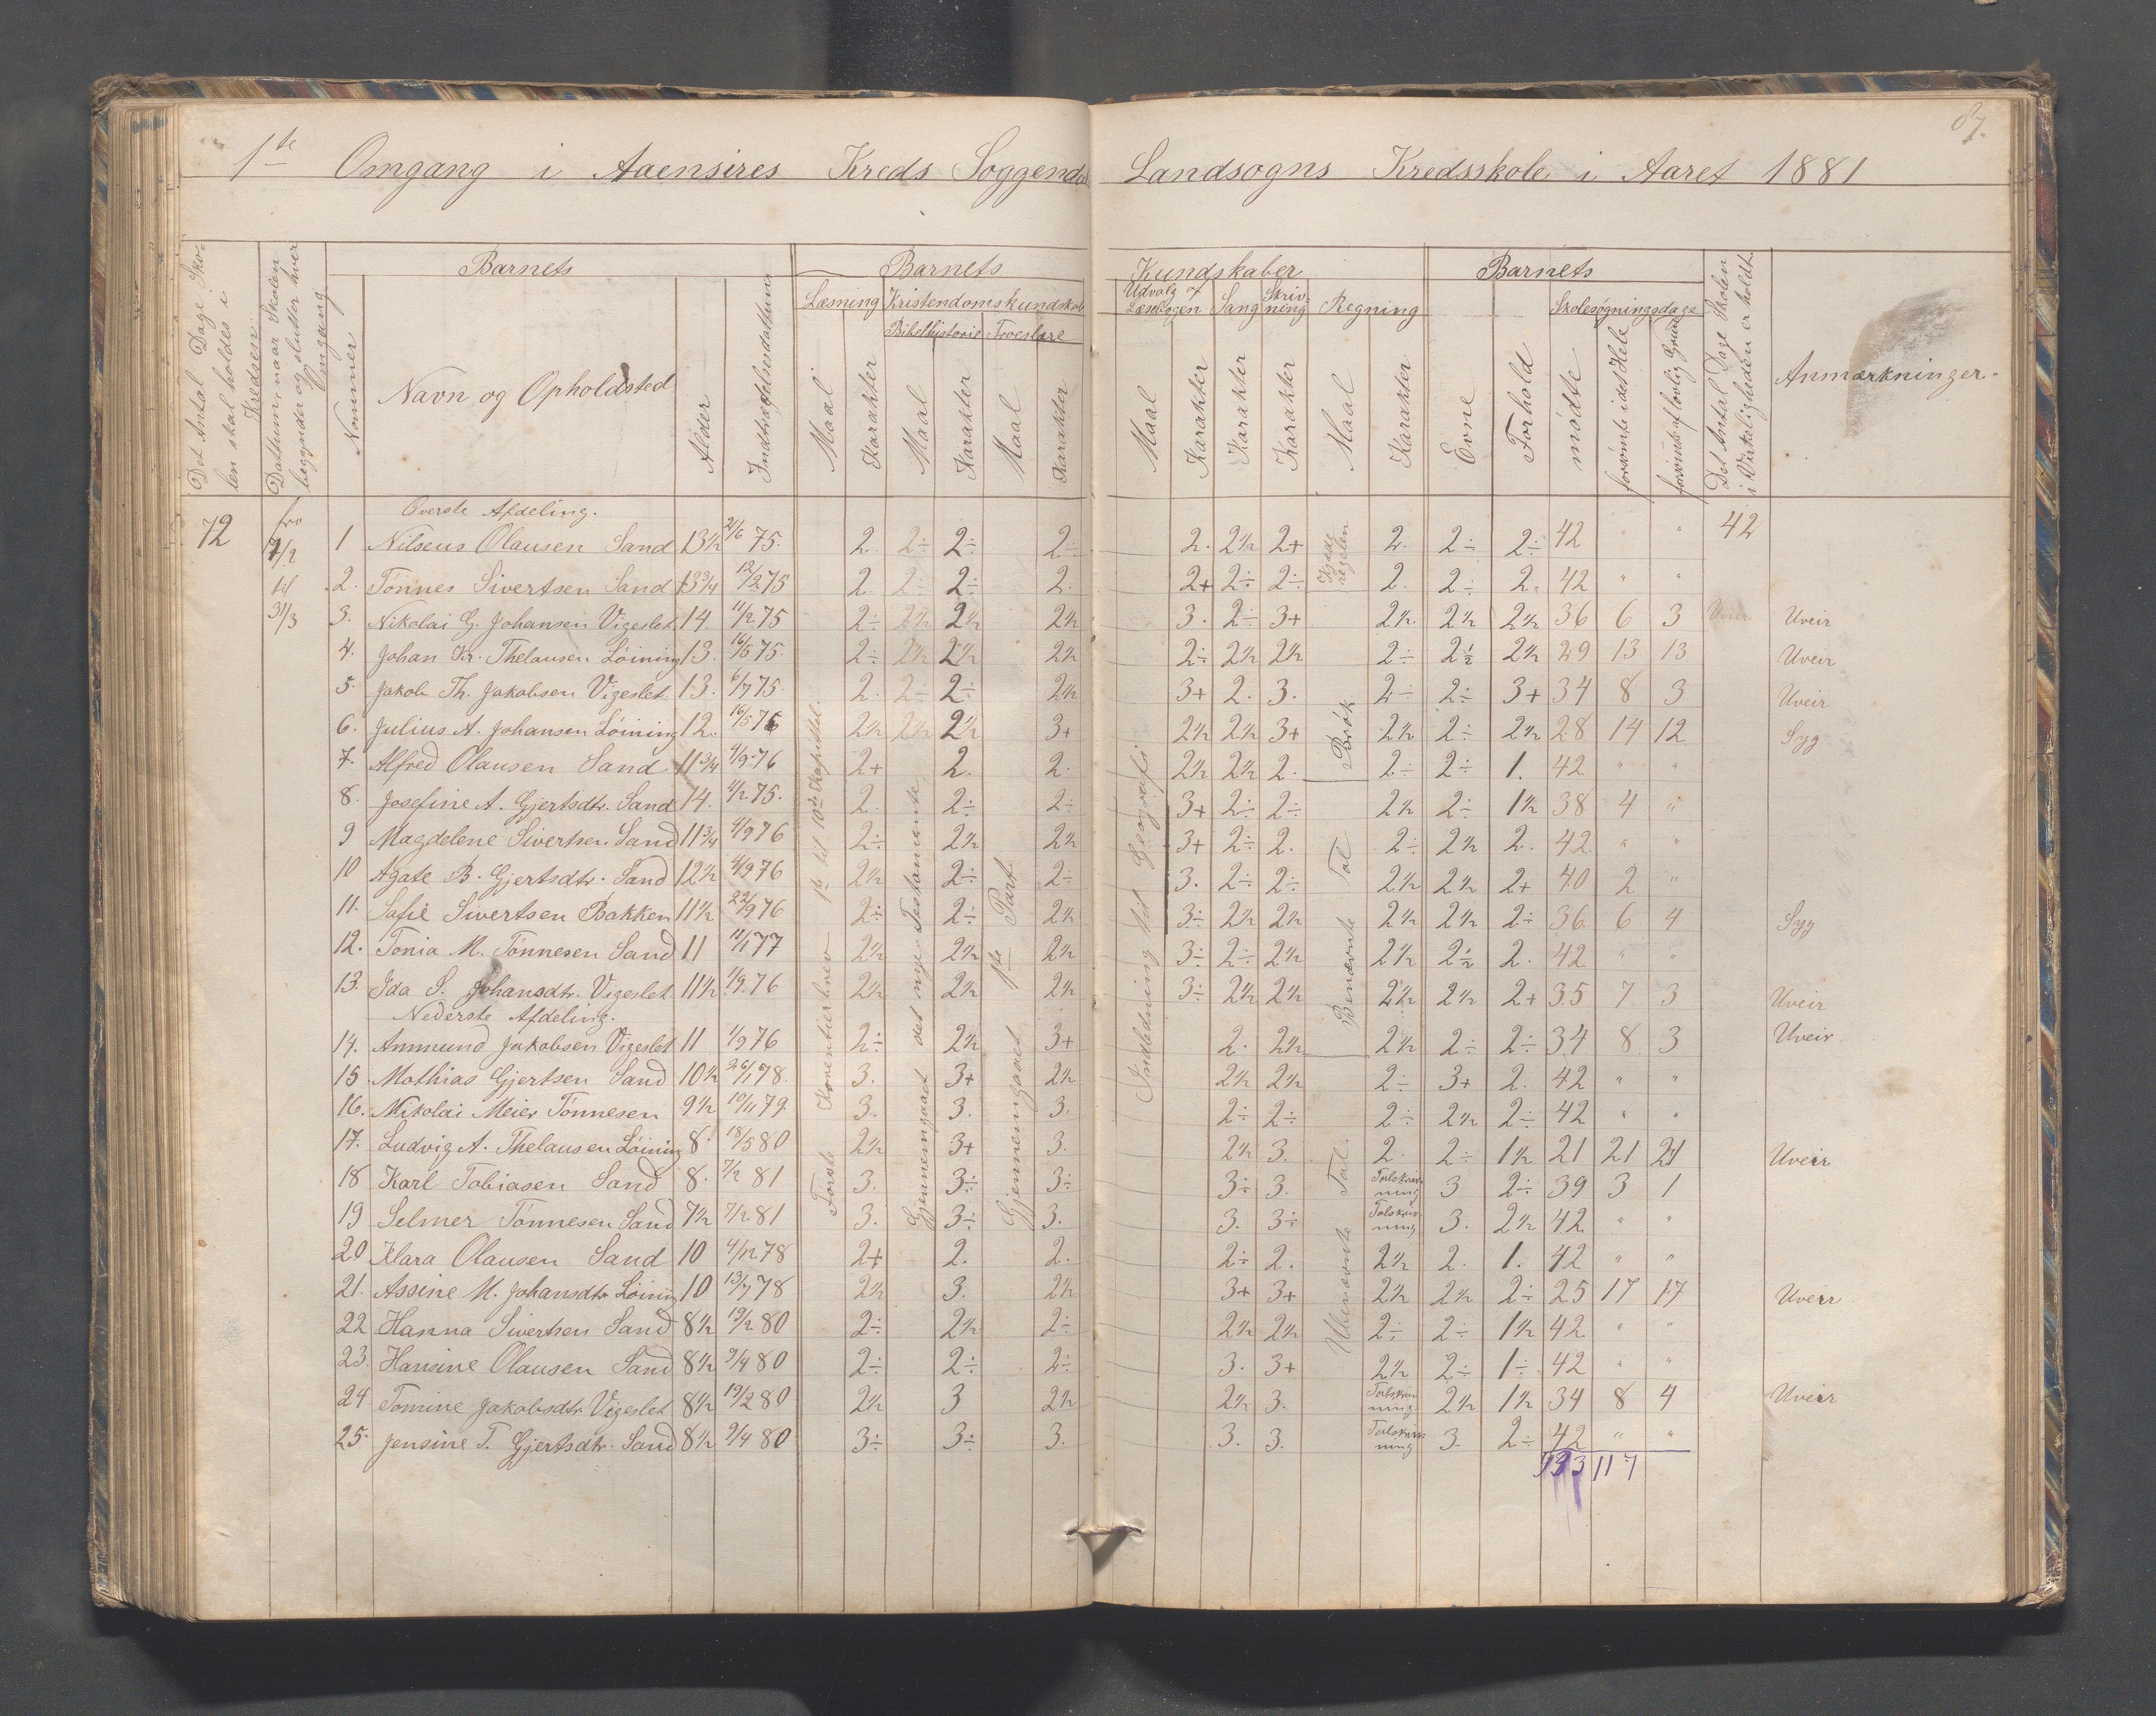 87.
1ste Omgang i Aaensires Kreds Soggendals Landsogns Kredsskole i Aaret 1881
Det Antal Dage Skolen skal holdes i Kredsen
Datum, naar Skolen begynder og slutter hver Omgang
Barnets
Nommer
Navn og Opholdsted
Alder
Indtrædelsesdatum
Barnets
Kundskaber
Læsning
Maal
Karakter
Kristendomskundskab
Bibelhistorie
Maal
Karakter
Troeslære
Maal
Karakter
Udvalg af Læsebogen
Maal
Karakter
Sang
Karakter
Skrivning
Karakter
Regning
Maal
Karakter
Barnets
Evne
Forhold
Skolesøgningsdage
mødte
forsømte i det Hele
forsømt af lovlig Grund
Det Antal Dage Skolen i Virkeligheden er holdt
Anmærkninger.
72
fra 7/2 til 31/3
42
Øverste Afdeling.
1 Nilseus Olausen Sand 13½ 21/6 75. 2. 2÷ 2÷ 2÷ 2. 2½ 2+ 2. 2÷ 2÷ 42 " "
2. Tönnes Sivertsen Sand 13¾ 12/2 75 2. 2÷ 2÷ 2. 2+ 2÷ 2÷ 2. 2÷ 2. 42 " "
3. Nikolai G. Johansen Vigeslet 14. 11/2 75 2÷ 2½ 2½ 2½ 3. 2÷ 3+ 2½ 2½ 2½ 36 6 3 Uveir Uveir
4. Johan Kr. Thelausen Löining 13. 16/5 75. 2÷ 2½ 2½ 2½ 2÷ 2½ 2½ 2÷ 2½ 2½ 29 13 13 Uveir
5. Jakob Th. Jakobsen Vigeslet 13. 6/7 75. 2. 2÷ 2÷ 2½ 3+ 2. 3. 2÷ 2÷ 3+ 34 8 3 Uveir
6. Julius A. Johansen Löining 12. 16/5 76 2½ 2½ 2½ 3+ 2½ 2½ 3+ 2½ 2÷ 2½ 28 14 12 Syg
7. Alfred Olausen Sand 11¾ 4/9 76 2+ 2. 2. 2½ 2½ 2. 2÷ 2÷ 1. 42 " "
8. Josefine A. Gjertsdtr. Sand 14. 4/2 75. 2. 2÷ 2÷ 3+ 2÷ 2÷ 2½ 2÷ 1½ 38 4 "
9 Magdelene Sivertsen Sand 11¾ 4/9 76 2÷ 2½ 2½ 3+ 2÷ 2. 2÷ 2½ 2. 42 " "
10 Agate B. Gjertsdtr. Sand 12½ 4/9 76 2½ 2÷ 2÷ 3. 2÷ 2÷ 2½ 2½ 2+ 40 2 "
11. Sofie Sivertsen Bakken 11½ 22/9 76 2÷ 2÷ 2½ 3÷ 2½ 2½ 2½ 2½ 2÷ 36 6 4 Syg
12. Tonia M. Tönnesen Sand 11 11/1 77 2½ 2½ 2½ 3÷ 2÷ 2½ 2½ 2½ 2. 42 " "
13. Ida S. Johansdtr. Vigeslet 11½ 1/9 76 2½ 2½ 2½ 3÷ 2½ 2½ 2½ 2½ 2+ 35 7 3 Uveir
Nederste Afdeling.
14. Ammund Jakobsen Vigeslet 11 1/9 76 2÷ 2½ 3+ 2. 2½ 2½ 2÷ 2÷ 34 8 3 Uveir
15 Mathias Gjertsen Sand 10½ 26/1 78. 3. 3+ 2½ 2½ 2½ 2÷ 3+ 2. 42 " "
16. Nikolai Meier Tönnesen 9½ 10/11 79 3. 3. 3. 2÷ 2÷ 2÷ 2½ 2÷ 42 " "
17. Ludvig A. Thelausen Löining 8. 18/5 80 2½ 3+ 3. 2½ 3. 2. 2÷ 1½ 21 21 21 Uveir
18 Karl Tobiasen Sand 8. 7/2 81 3. 3÷ 3÷ 3÷ 3. Talskrivning 3 2÷ 39 3 1
19 Selmer Tönnesen Sand 7½ 7/2 81 3. 3÷ 3. 3. 3÷ Talskrivning 3. 2½ 42 " "
20 Klara Olausen Sand 10 4/12 78 2+ 2. 2. 2÷ 2. 2½ 2. 1. 42 " "
21. Assine M. Johansdtr Löining 10 13/7 78 2½ 3. 2½ 3+ 3+ 2½ 2½ 2÷ 25 17 17 Uveir
22 Hanna Sivertsen Sand 8½ 19/2 80 2÷ 2½ 2÷ 2½ 2½ 2÷ 2÷ 1½ 42 " "
23. Hansine Olausen Sand 8½ 9/4 80 2÷ 2÷ 2÷ 3. 3+ 2½ 2÷ 1÷ 42 " "
24 Tomine Jakobsdtr Vigeslet 8½ 19/2 80 2½ 3 2½ 2½ 3. Talskrivning 2½ 1½ 34 8 4 Uveir
25. Jensine T. Gjertsdtr. Sand 8½ 9/4 80 3÷ 3÷ 3. 3. 3. Talskrivning 3. 2÷ 42 " "
933 117
1ste til 10de Kapittel.
Gjennemgaaet det nye Testamente
Gjennemgaaet 1ste Part
Indledning til Geografi
Kjæderegelen
Brøk
Benævnte Tal
Ubenævnte Tal.